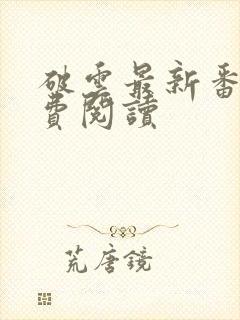 破雲最新番
費閱讀
荒唐鏡